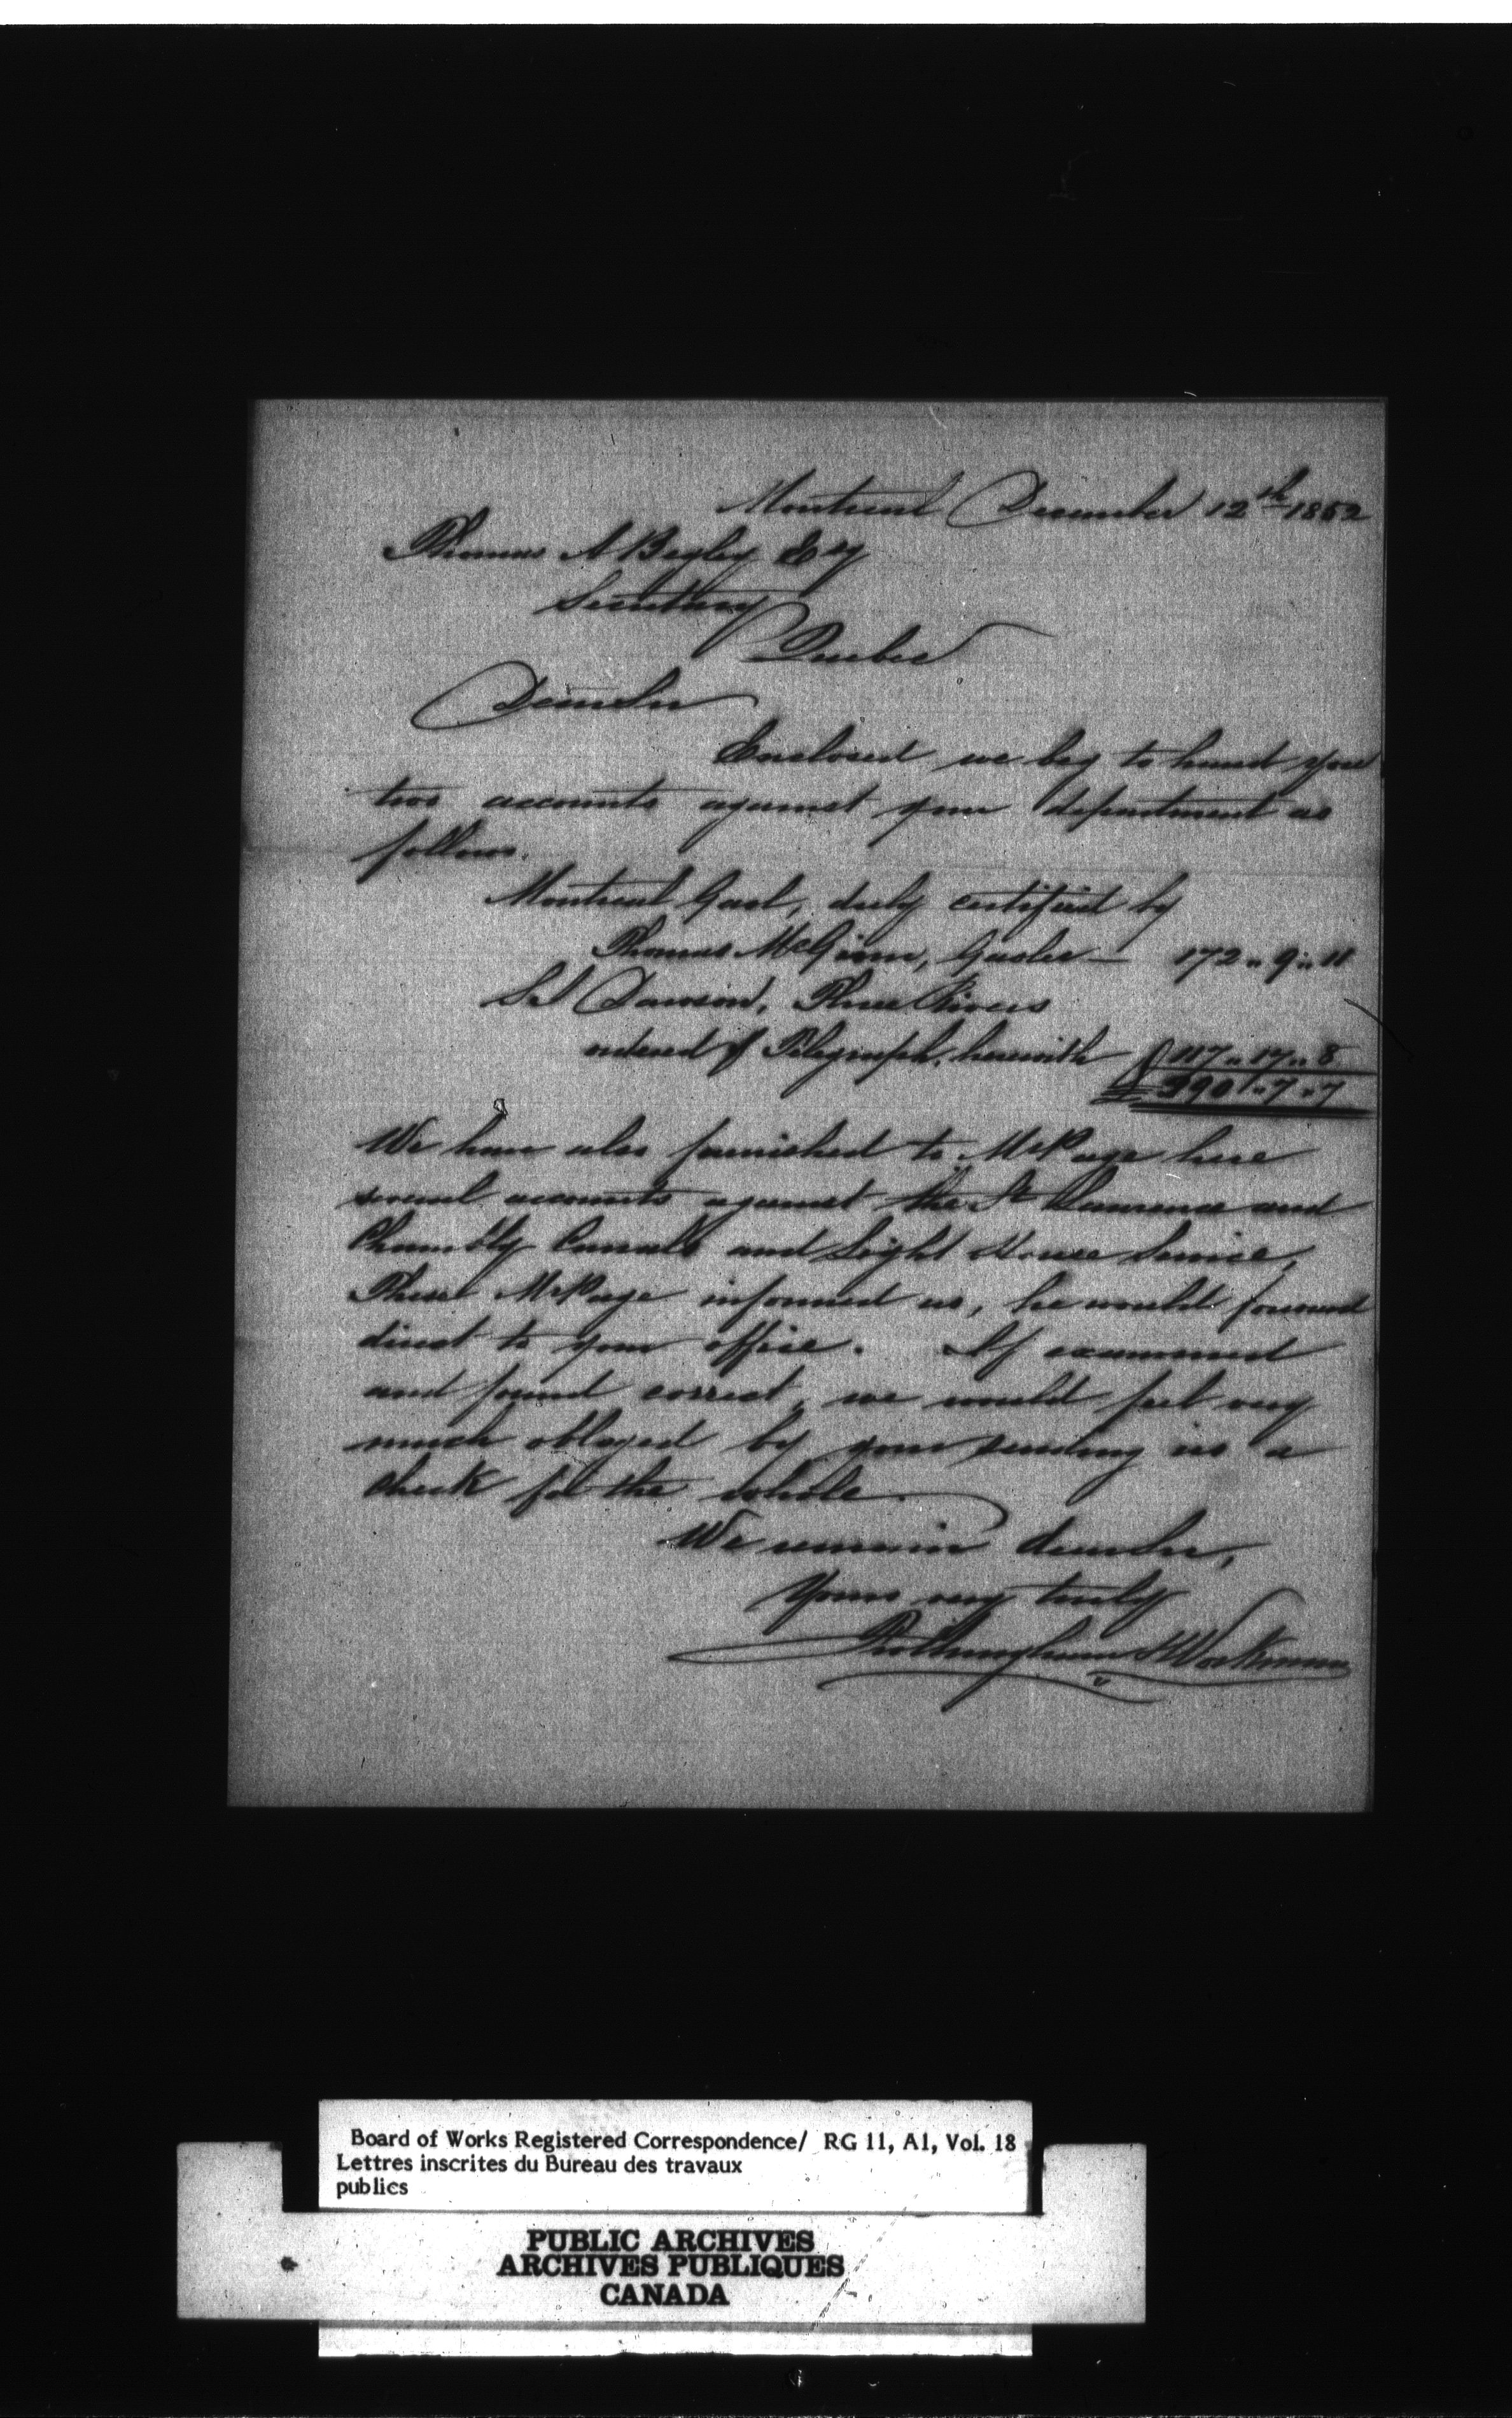 Montreal December 12th 1852
Thomas A Begley Esq
Secretary
Quebec
Dear Sir
Enclosed we beg to hand you
two accounts against your department as
follows.
Montreal Gaol, duly certified by
Thomas McGinn, Gaoler — 172 " 9 " 11
S J Dawson, Three Rivers
ordered pr Telegraph, herewith 117 " 17 " 8
£ 290 " 7 " 7
We have also furnished to Mr Page here
several accounts against the St Lawrence and
Chambly Canals and Light House Service,
These Mr Page informed us, he would forward
direct to your office. If examined
and found correct, we would feel very
much obliged by your sending us a
check for the whole.
We remain dear Sir,
Yours very truly
Frothingham & Workman
Board of Works Registered Correspondence/ RG 11, A1, Vol. 18
Lettres inscrites du Bureau des travaux
publics
PUBLIC ARCHIVES
ARCHIVES PUBLIQUES
CANADA